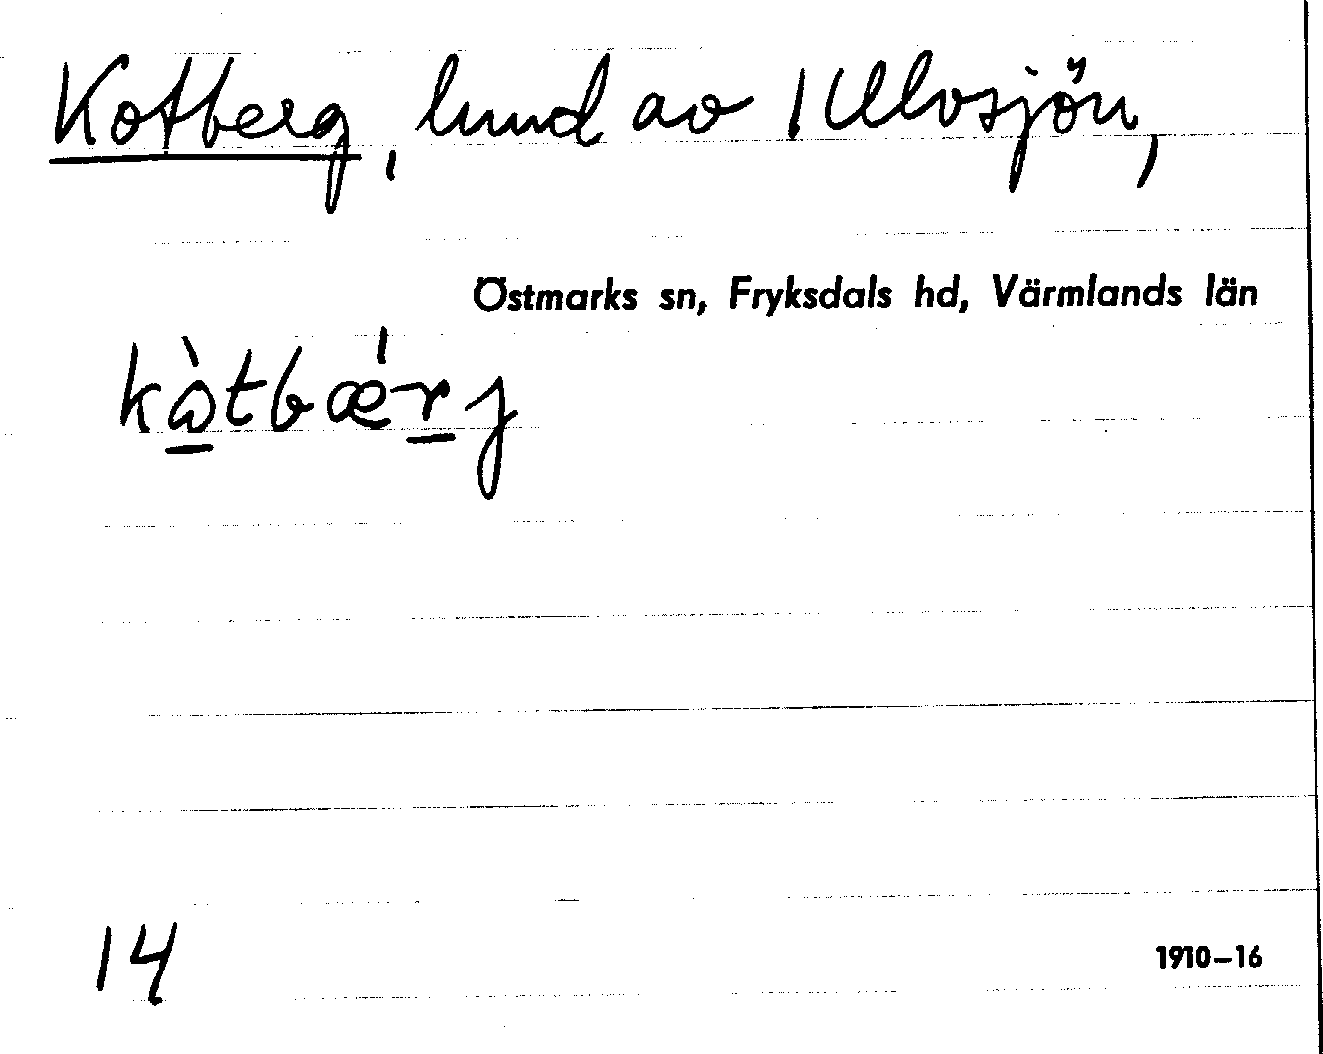 Kotberg, lund av 1 Ulvsjön,
Östmarks sn, Fryksdals hd, Värmlands län
kòtbǽrj
14
1910–16